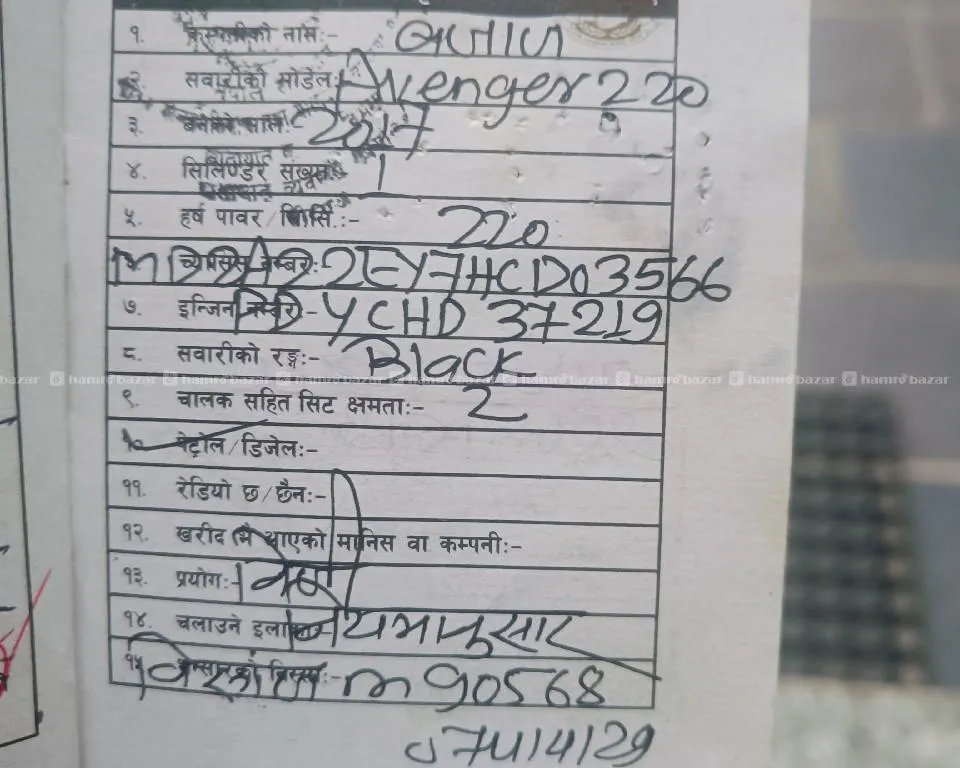 १. कम्पनीको नाम:- बजाज
२. सवारीको मोडेल:- Avenger 220
३. बनेको साल:- 2017
४. सिलिण्डर संख्या:- 1
५. हर्ष पावर/सि.सि.:- 220
च्यासिस नम्बर:- 2EY7HCD03566
७. इन्जिन नम्बर:- YCHD 37219
८. सवारीको रङ्ग:- Black
hamro bazar hamro bazar hamro bazar hamro bazar hamro bazar hamro bazar hamro bazar hamro bazar
९. चालक सहित सिट क्षमता:- 2
१०. पेट्रोल/डिजेल:-
११. रेडियो छ/छैन:-
१२. खरीद भै आएको मानिस वा कम्पनी:-
१३. प्रयोग:-
१४. चलाउने इलाका नियमानुसार
१५ m 90568
074/4/29